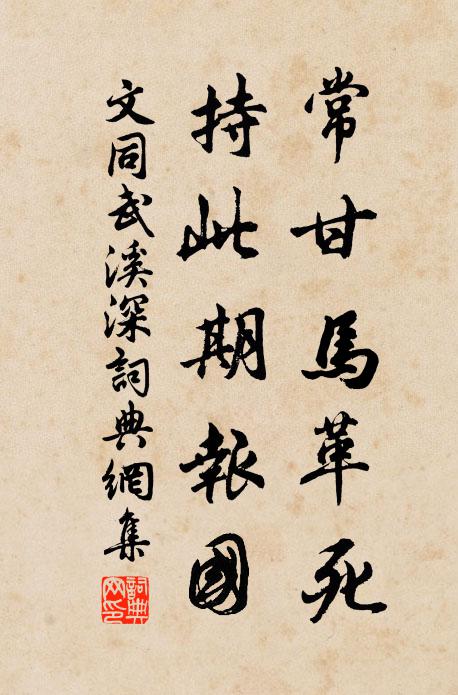 常甘馬革死
持此期報國
文同武溪深詞典網集
詞典網印